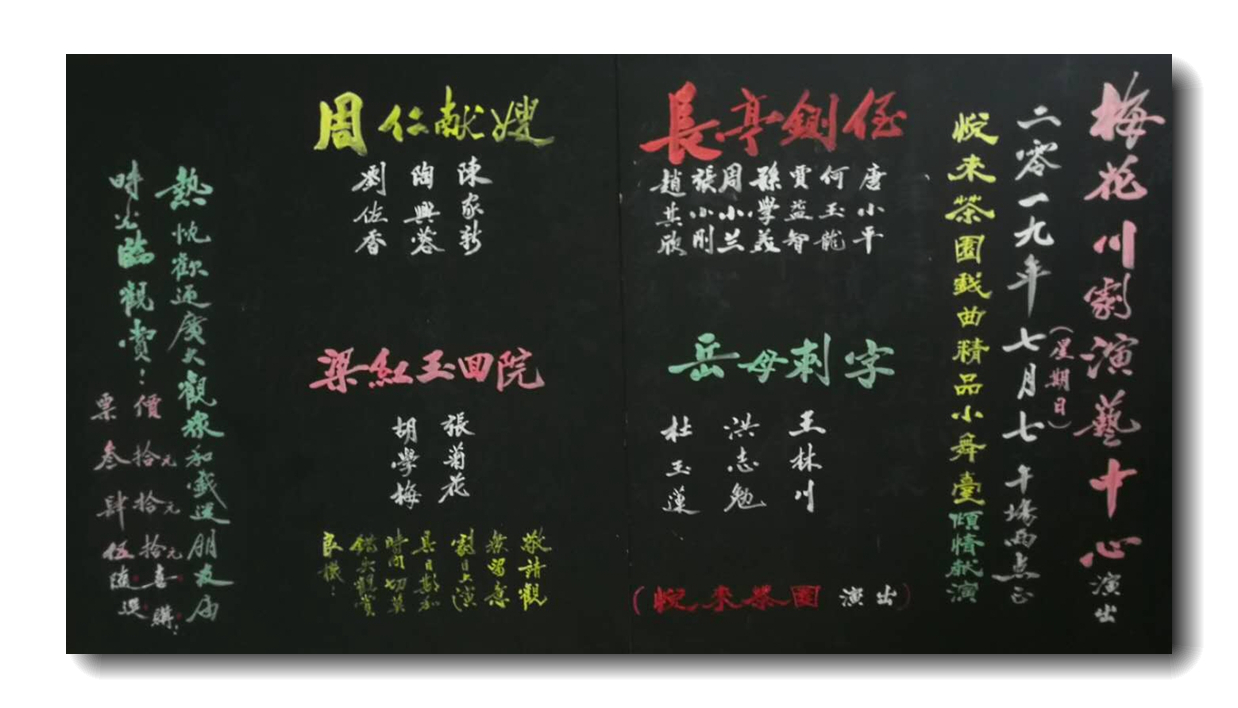 梅花川劇演藝中心演出
二零一九年七月七(星期日)午場兩点正
悅来茶園戲曲精品小舞臺傾情献演
長亭鍘侄
唐小平
何玉龍
賈益智
孫學義
周小兰
張小刚
趙其欣
岳母刺字
王林川
洪志勉
杜玉蓮
(悅来茶園演出)
周仁献嫂
陳家新
陶興蓉
劉佐香
梁紅玉回院
張菊花
胡學梅
敬請觀
衆留意
劇目上演
具日期和
時間切莫
錯失觀賞
良機!
熱忱歡迎廣大觀衆和戲迷朋友届
時光臨觀賞!
票價
叁拾元
肆拾元
伍拾元
隨意
選購!